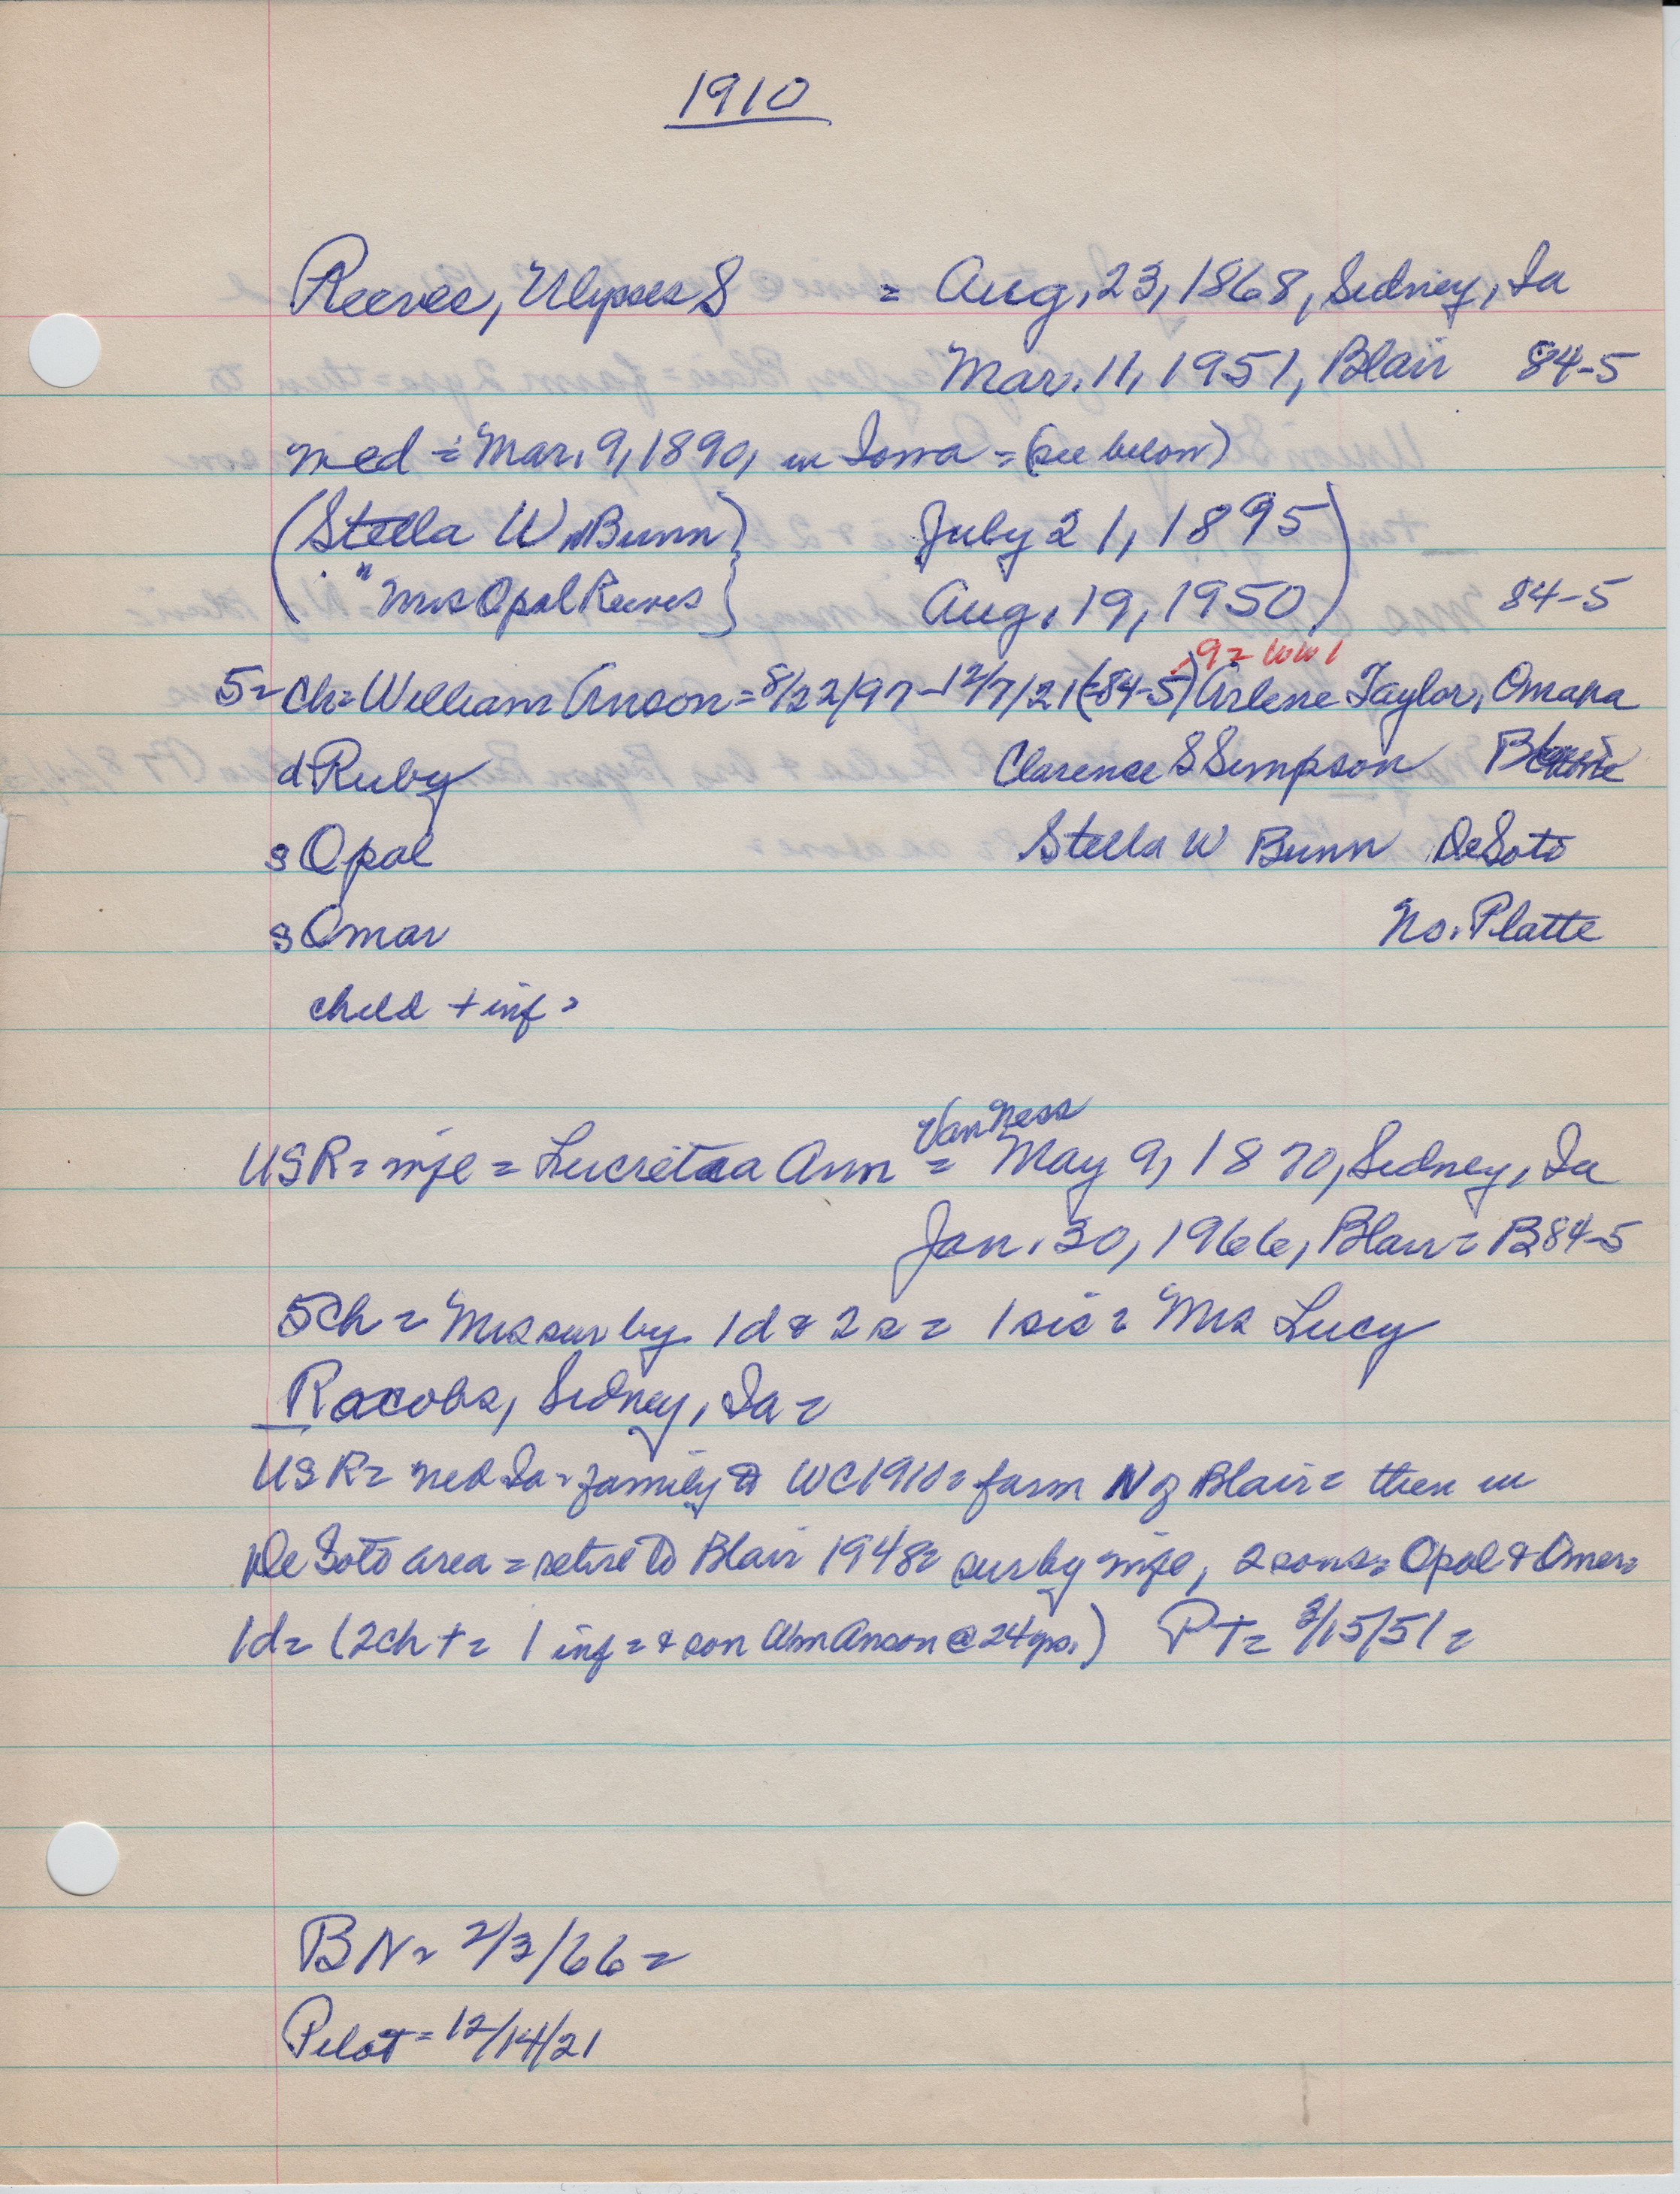 1910
Reeves, Ulysses S = Aug. 23, 1868, Sidney, Ia
Mar. 11, 1951, Blair 84-5
med = Mar. 9, 1890, in Iowa = (see below)
(Stella W Bunn) July 21, 1895)
( " Mrs Opal Reeves } Aug. 19, 1950) 84-5
9 = WW1
5 = Ch = William Anson = 8/22/97 - 12/7/21 (=84-5) Arlene Taylor, Omaha
d Ruby Clarence S Simpson
s Opal Stella W Bunn DeSoto
s Omar No. Platte
child + inf =
VanNess
USR = wife = Lucretaa Ann = May 9, 1870, Sidney, Ia
Jan. 30, 1966, Blair = B84-5
5Ch = Mrs sur by 1d & 2s = 1 sis = Mrs Lucy
Racobs, Sidney, Ia =
USR = med Ia = family to WC 1910 = farm N of Blair = then in
DeSoto area = retire to Blair 1948 = sur by wife, 2 sons = Opal & Omer =
1d = (2ch + = 1 inf = & son Wm Anson @ 24 yrs.) PT = 3/15/51 =
BN = 2/3/66 =
Pilot = 12/14/21